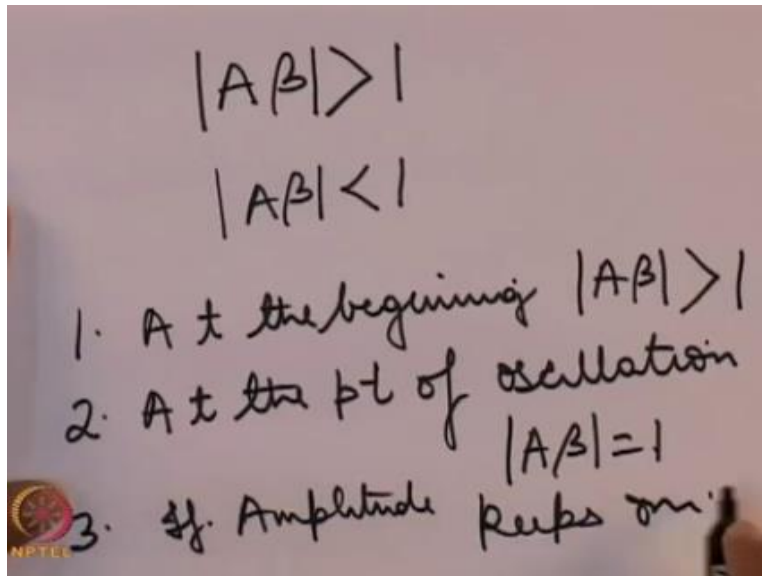 |Aβ|>1
|Aβ|<1
1. At the begining |Aβ|>1
2. At the pt of oscillation
|Aβ|=1
3. If Amplitude keeps on
NPTEL